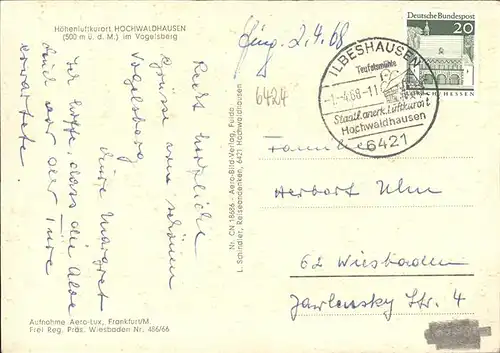 Höhenluftkurort HOCHWALDHAUSEN
(500 m ü. d. M.) im Vogelsberg
Recht herzliche
Grüsse vom schönen
Vogelsberg
Eure Margret
Ich hoffe, dass die Akte
erwartete.
Aufnahme Aero-Lux, Frankfurt/M.
Frei Reg. Präs. Wiesbaden Nr. 486/66
Nr. CN 18686 - Aero-Bild-Verlag, Fulda
L. Schindler, Reiseandenken, 6421 Hochwaldhausen
2.4.68
6424
ILBESHAUSEN
Teufelsmühle
-1.-4.68-11
Staatl. anerk. Luftkurort
Hochwaldhausen
6421
Deutsche Bundespost
20
HESSEN
Familie
Herbert Ulm
62 Wiesbaden
Jawlensky Str. 4